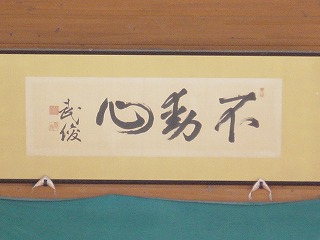 不動心
武俊